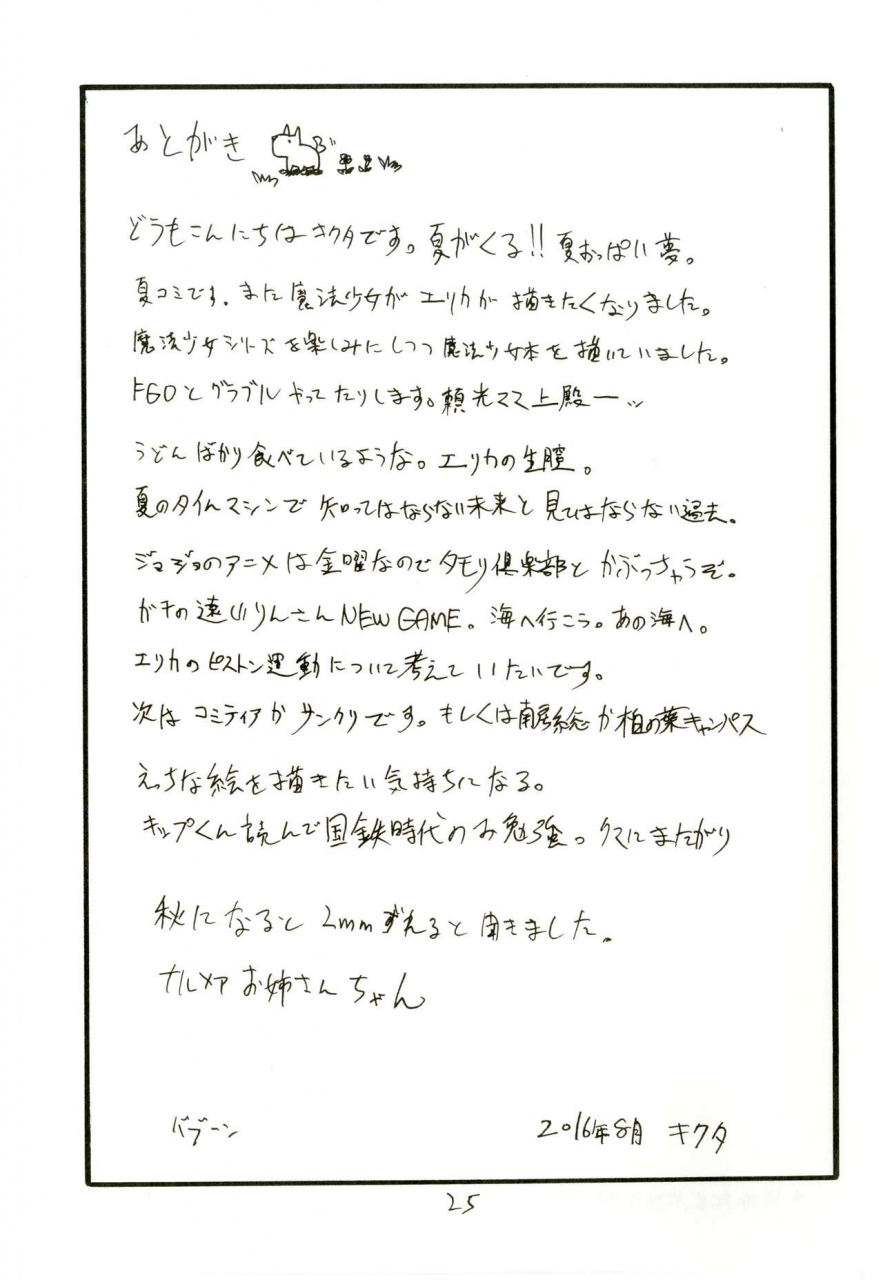 あとがき
どうもこんにちはキクタです。夏がくる!! 夏おっぱい夢。
夏コミです。また魔法少女が エリカが 描きたくなりました。
魔法少女シリーズを楽しみにしつつ 魔法少女本を描いていました。
FGOとグラブル やってたりします。頼光ママ上殿ーッ
うどんばかり食べているような。エリカの生膣。
夏のタイムマシンで 知ってはならない未来と 見てはならない過去。
ジョジョのアニメは金曜なのでタモリ倶楽部と かぶっちゃうぞ。
ガチの遠山りんさんNEW GAME。海へ行こう。あの海へ。
エリカのピストン運動について考えていたいです。
次は コミティアか サンクリです。もしくは南房総か柏の葉キャンパス
えっちな絵を描きたい気持ちになる。
キップくん読んで国鉄時代のお勉強。クマにまたがり
秋になると 2mmずれると聞きました。
ナルメアお姉さんちゃん
バブーン
2016年8月 キクタ
25